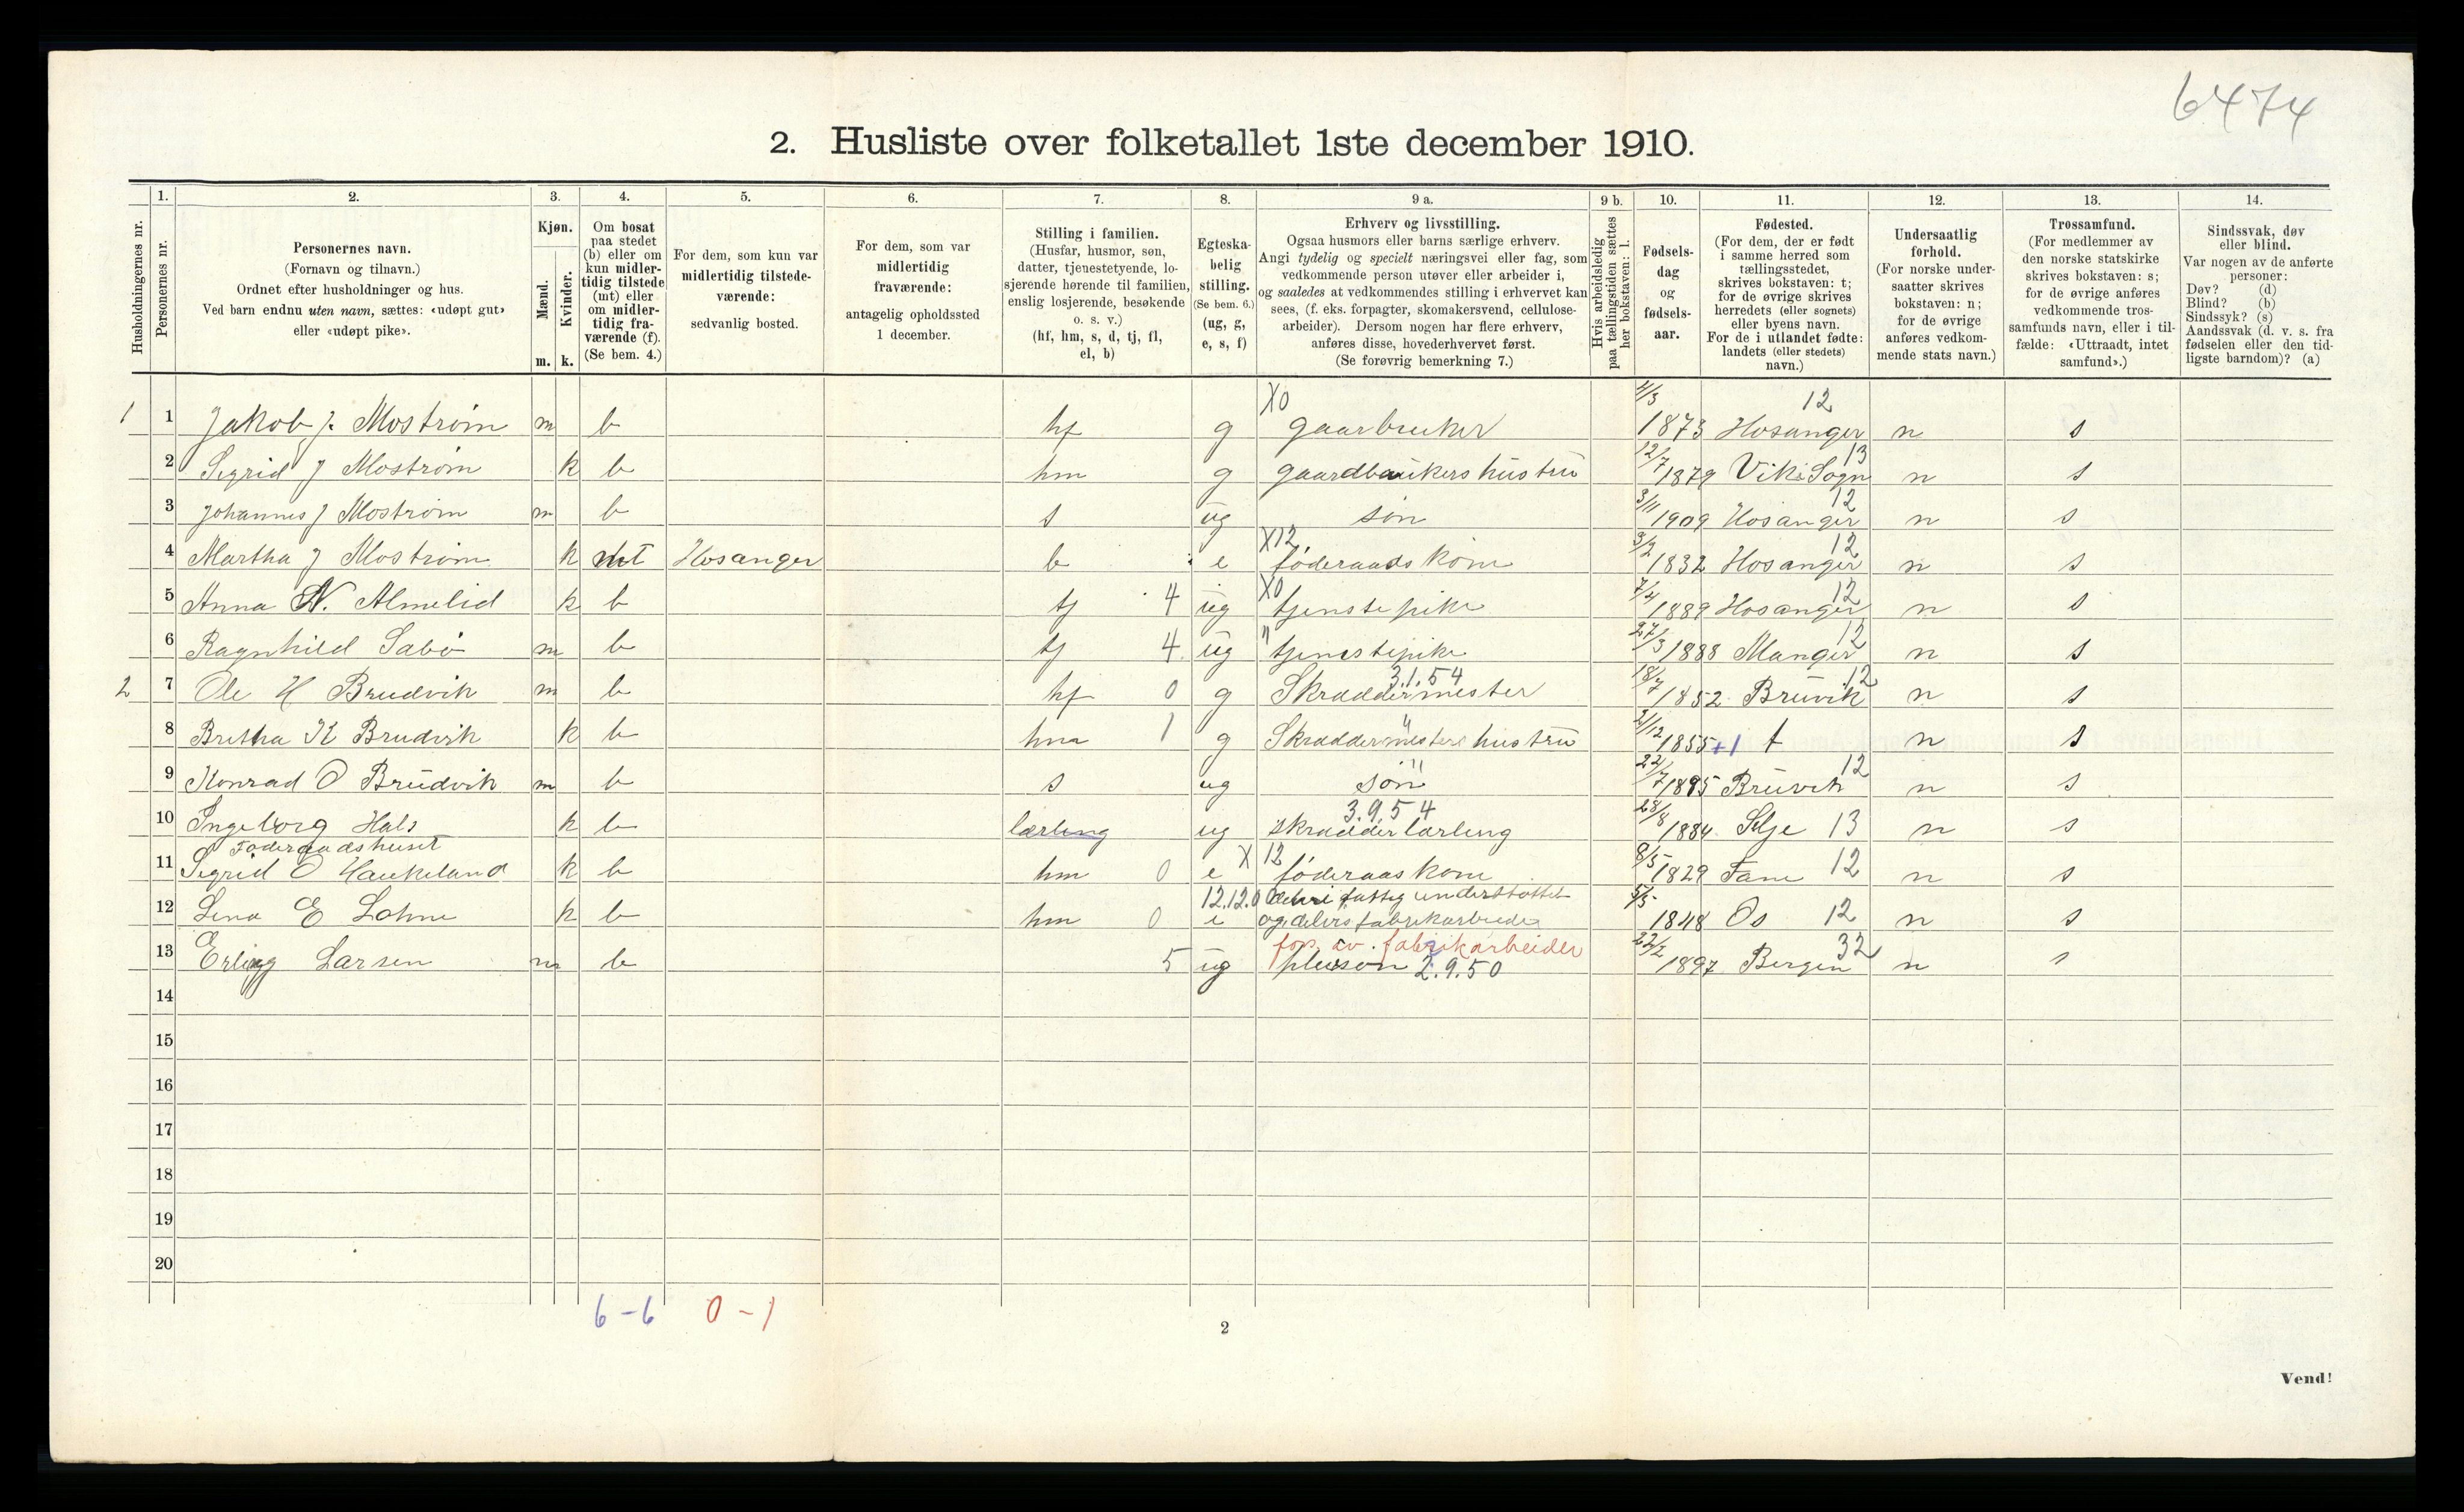 6474
2. Husliste over folketallet 1ste december 1910.
Husholdningernes nr.
1.
Personernes nr.
2.
Personernes navn.
(Fornavn og tilnavn.)
Ordnet efter husholdninger og hus.
Ved barn endnu uten navn, sættes: «udøpt gut»
eller «udøpt pike».
3.
Kjøn.
Mænd.
Kvinder.
m. k.
4.
Om bosat
paa stedet
(b) eller om
kun midler-
tidig tilstede
(mt) eller
om midler-
tidig fra-
værende (f).
(Se bem. 4.)
5.
For dem, som kun var
midlertidig tilstede-
værende:
sedvanlig bosted.
6.
For dem, som var
midlertidig
fraværende:
antagelig opholdssted
1 december.
7.
Stilling i familien.
(Husfar, husmor, søn,
datter, tjenestetyende, lo-
sjerende hørende til familien,
enslig losjerende, besøkende
o. s. v.)
(hf, hm, s, d, tj, fl,
el, b)
8.
Egteska-
belig
stilling.
(Se bem. 6.)
(ug, g,
e, s, f)
9 a.
Erhverv og livsstilling.
Ogsaa husmors eller barns særlige erhverv.
Angi tydelig og specielt næringsvei eller fag, som
vedkommende person utøver eller arbeider i,
og saaledes at vedkommendes stilling i erhvervet kan
sees, (f. eks. forpagter, skomakersvend, cellulose-
arbeider). Dersom nogen har flere erhverv,
anføres disse, hovederhvervet først.
(Se forøvrig bemerkning 7.)
9 b.
Hvis arbeidsledig
paa tællingstiden sættes
her bokstaven: l.
10.
Fødsels-
dag
og
fødsels-
aar.
11.
Fødested.
(For dem, der er født
i samme herred som
tællingsstedet,
skrives bokstaven: t;
for de øvrige skrives
herredets (eller sognets)
eller byens navn.
For de i utlandet fødte:
landets (eller stedets)
navn.)
12.
Undersaatlig
forhold.
(For norske under-
saatter skrives
bokstaven: n;
for de øvrige
anføres vedkom-
mende stats navn.)
13.
Trossamfund.
(For medlemmer av
den norske statskirke
skrives bokstaven: s;
for de øvrige anføres
vedkommende tros-
samfunds navn, eller i til-
fælde: «Uttraadt, intet
samfund».)
14.
Sindssvak, døv
eller blind.
Var nogen av de anførte
personer:
Døv? (d)
Blind? (b)
Sindssyk? (s)
Aandssvak (d. v. s. fra
fødselen eller den tid-
ligste barndom)? (a)
1 1 Jakob J. Mostrøm m b hf g X0 gaarbruker 4/3 1873 Hosanger 12 n s
2 Sigrid J Mostrøm k b hm g gaardbrukers hustru 12/7 1879 Vik i Sogn 13 n s
3 Johannes J Mostrøm m b s ug søn 3/11 1909 Hosanger 12 n s
4 Martha J Mostrøm k mt Hosanger b e X12 føderaadskone 3/2 1832 Hosanger 12 n s
5 Anna N. Almelid k b tj 4 ug X0 tjenstepike 7/4 1889 Hosanger 12 n s
6 Ragnhild Sabø m b tj 4 ug " tjenestepike 27/3 1888 Manger 12 n s
2 7 Ole H Brudvik m b hf 0 g Skraddermester 3.1.54 18/7 1852 Bruvik 12 n s
8 Bretha K Brudvik k b hm 1 g Skraddermesters hustru " 2/12 1855 +1 t n s
9 Konrad O Brudvik m b s ug søn " 22/7 1895 Bruvik 12 n s
10 Ingeborg Hals k b lærling ug skradderlærling 3.9.54 28/8 1884 Selje 13 n s
Føderaadshuset
11 Sigrid O Haukeland k b hm 0 e X 12 føderaaskone 8/5 1829 Fane 12 n s
12 Lena E Lohne k b hm 0 e 12.12.0 delvis fattig understøttet
og delvis fabrikarbeider 5/5 1848 Os 12 n s
fors. av. fabrikarbeider
13 Erling Larsen m b 5 ug pleisøn 2.9.50 22/2 1897 Bergen 32 n s
14
15
16
17
18
19
20
6 - 6 0 - 1
2
Vend!